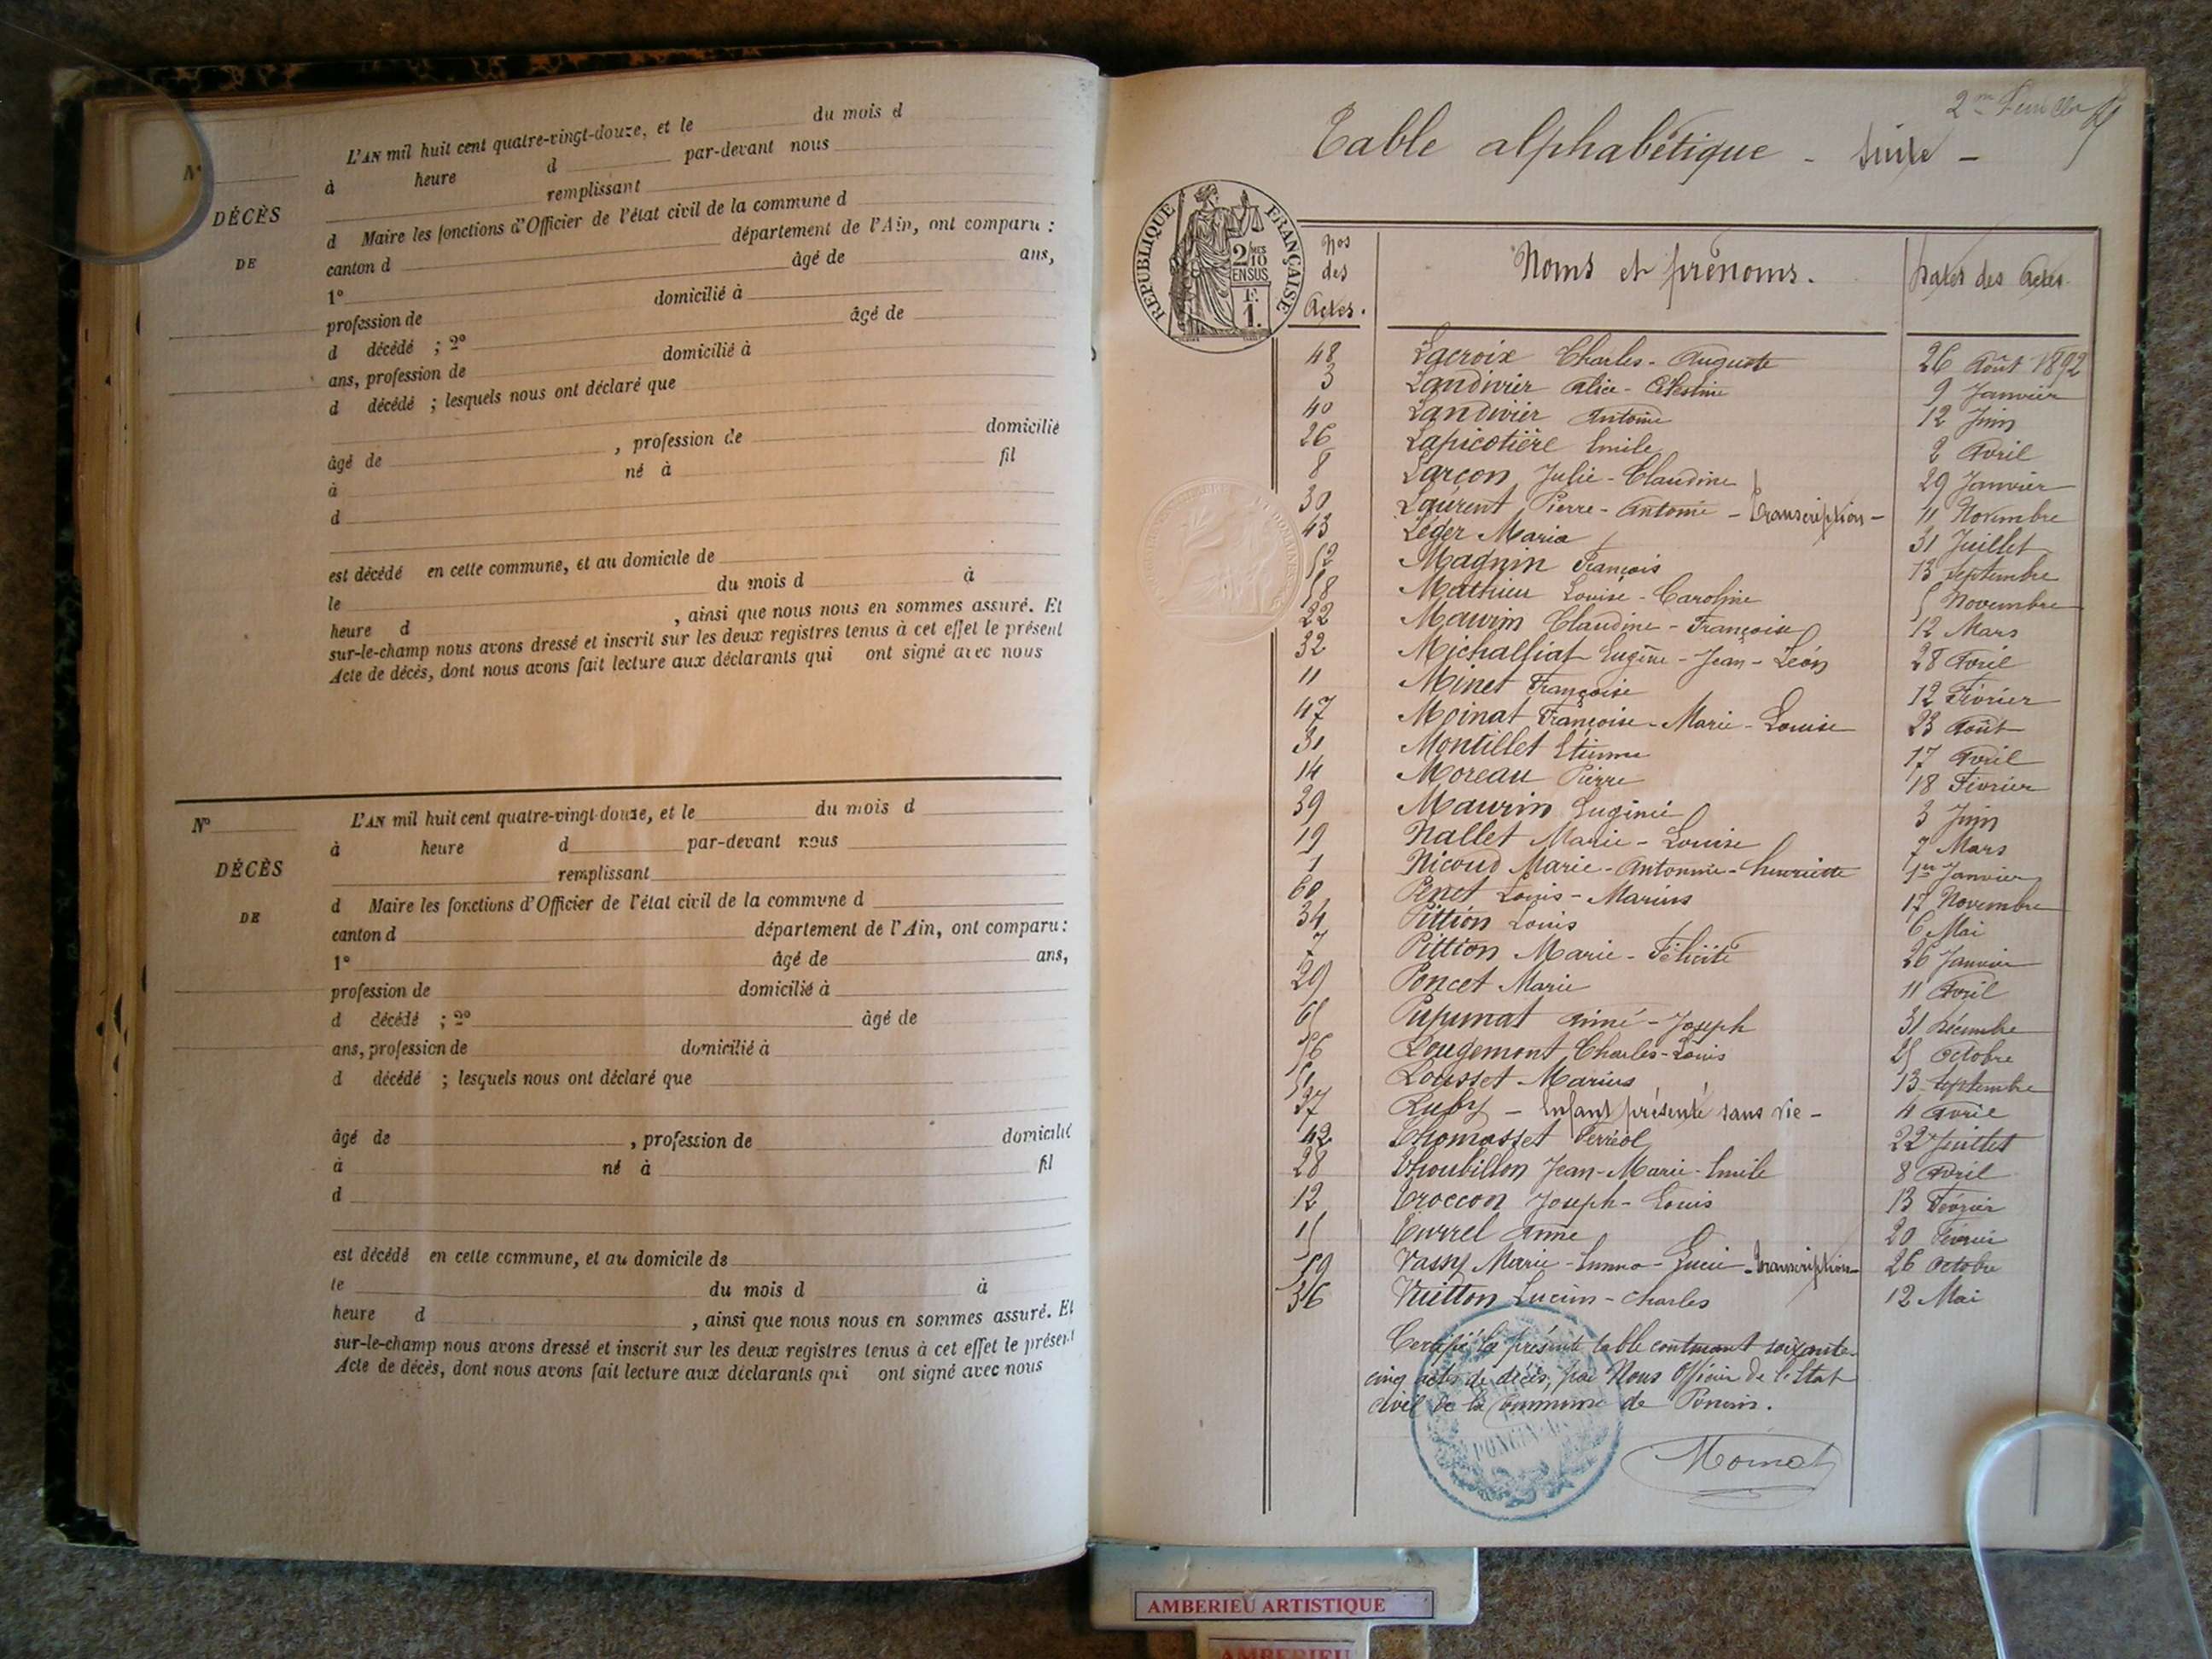 L'AN mil huit cent quatre-vingt-douze, et le du mois d
N°
à heure d par-devant nous
remplissant
DÉCÈS
d Maire les fonctions d'Officier de l'état civil de la commune d
DE
canton d département de l'Ain, ont comparu :
1° âgé de ans,
profession de domicilié à
d décédé ; 2° âgé de
ans, profession de domicilié à
d décédé ; lesquels nous ont déclaré que
âgé de , profession de domicilié
à né à fil
d
est décédé en cette commune, et au domicile de
le du mois d à
heure d , ainsi que nous nous en sommes assuré. Et
sur-le-champ nous avons dressé et inscrit sur les deux registres tenus à cet effet le présent
Acte de décès, dont nous avons fait lecture aux déclarants qui ont signé avec nous
N°
L'AN mil huit cent quatre-vingt-douze, et le du mois d
à heure d par-devant nous
DÉCÈS
remplissant
d Maire les fonctions d'Officier de l'état civil de la commune d
DE
canton d département de l'Ain, ont comparu :
1° âgé de ans,
profession de domicilié à
d décédé ; 2° âgé de
ans, profession de domicilié à
d décédé ; lesquels nous ont déclaré que
âgé de , profession de domicilié
à né à fil
d
est décédé en cette commune, et au domicile de
le du mois d à
heure d , ainsi que nous nous en sommes assuré. Et
sur-le-champ nous avons dressé et inscrit sur les deux registres tenus à cet effet le présent
Acte de décès, dont nous avons fait lecture aux déclarants qui ont signé avec nous
Table alphabétique - suite -
RÉPUBLIQUE FRANÇAISE
2/10 MES EN SUS
F. 1.
Nos des Actes. Noms et prénoms. Dates des Actes
48 Lacroix Charles-Auguste 26 Août 1892
3 Landivier Alice-Célestine 9 Janvier
40 Landivier Antoine 12 Juin
26 Lapicotière Emile 2 Avril
8 Larçon Julie-Claudine 29 Janvier
30 Laurent Pierre-Antoine - Transcription - 11 Novembre
43 Léger Maria 31 Juillet
52 Magnin François 13 Septembre
58 Mathieu Louise-Caroline 5 Novembre
22 Maurin Claudine-Françoise 12 Mars
32 Michalfiat Eugène-Jean-Léon 28 Avril
11 Minet Françoise 12 Février
47 Moinat Françoise-Marie-Louise 23 Août
31 Montillet Etienne 17 Avril
14 Moreau Pierre 18 Février
39 Maurin Eugénie 3 Juin
19 Nallet Marie-Louise 7 Mars
1 Nicoud Marie-Antonine-Henriette 1er Janvier
60 Penet Louis-Marius 17 Novembre
34 Pittion Louis 6 Mai
7 Pittion Marie-Félicité 26 Janvier
29 Poncet Marie 11 Avril
65 Pupunat Aimé-Joseph 31 Décembre
56 Rougemont Charles-Louis 25 Octobre
51 Rousset Marius 13 Septembre
27 Ruby - Enfant présenté sans vie - 4 Avril
42 Thomasset Ferréol 22 Juillet
28 Thoubillon Jean-Marie-Emile 8 Avril
12 Troccon Joseph-Louis 13 Février
15 Turrel Anne 20 Février
59 Vassy Marie-Emma-Lucie - Transcription - 26 Octobre
36 Vuitton Lucien-Charles 12 Mai
Certifié la présente table contenant soixante-
cinq actes de décès, par Nous Officier de l'Etat
civil de la commune de Poncin.
Moinat
AMBERIEU ARTISTIQUE
AMBERIEU